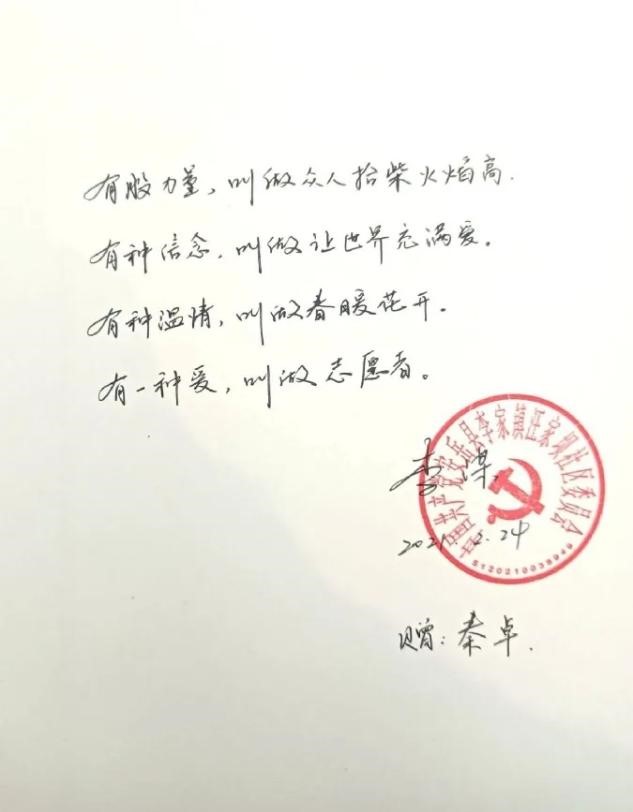 有股力量，叫做众人抬柴火焰高.
有种信念，叫做让世界充满爱。
有种温情，叫做春暖花开.
有一种爱，叫做志愿者。
中国共产党安岳县李家镇汪家坝社区委员会
李
2021.2.24
5120210039949
赠：秦卓.